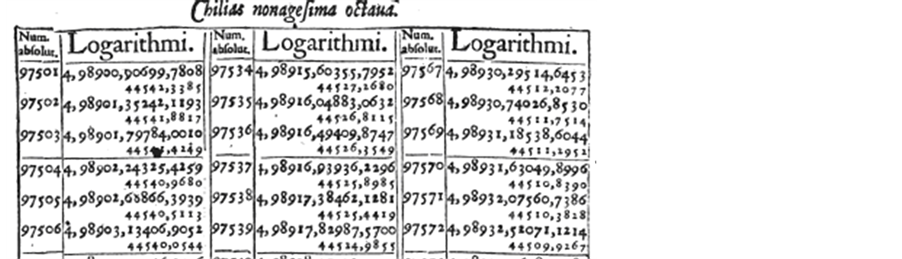 Chilias nonagesima octaua.
Num. absolut. Logarithmi. Num. absolut. Logarithmi. Num. absolut. Logarithmi.
97501 4,98900,90699,7808 97534 4,98915,60355,7952 97567 4,98930,29514,6453
44542,3385 44527,2680 44512,2077
97502 4,98901,35242,1193 97535 4,98916,04883,0632 97568 4,98930,74026,8530
44541,8817 44526,8115 44511,7514
97503 4,98901,79784,0010 97536 4,98916,49409,8747 97569 4,98931,18538,6044
44541,4249 44526,3549 44511,2952
97504 4,98902,24325,4259 97537 4,98916,93936,2296 97570 4,98931,63049,8996
44540,9680 44525,8985 44510,8390
97505 4,98902,68866,3939 97538 4,98917,38462,1281 97571 4,98932,07560,7386
44540,5113 44525,4419 44510,3828
97506 4,98903,13406,9052 97539 4,98917,82987,5700 97572 4,98932,52071,1214
44540,0544 44524,9855 44509,9267